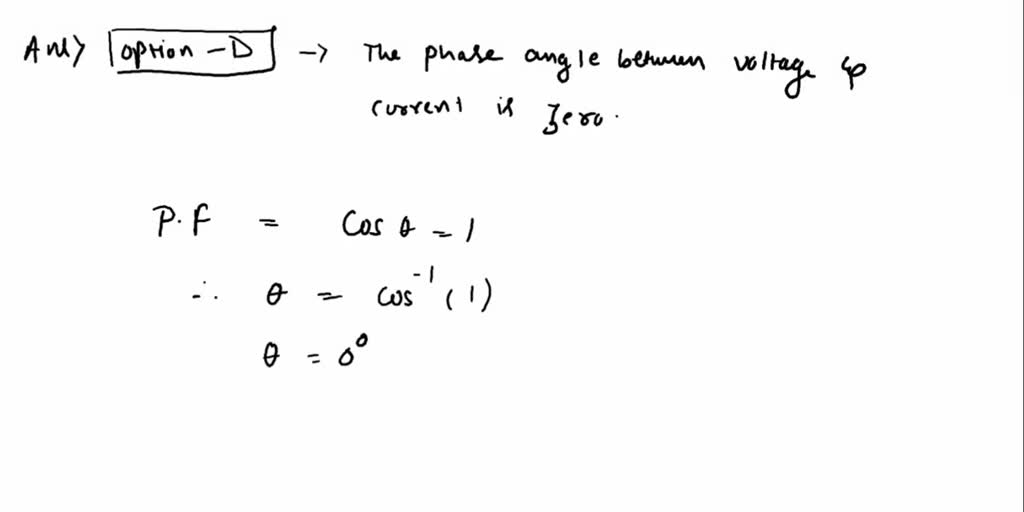 Ans> option - D → The phase angle between voltage &
current is zero.
P.F = Cos θ = 1
∴ θ = cos⁻¹ (1)
θ = 0⁰